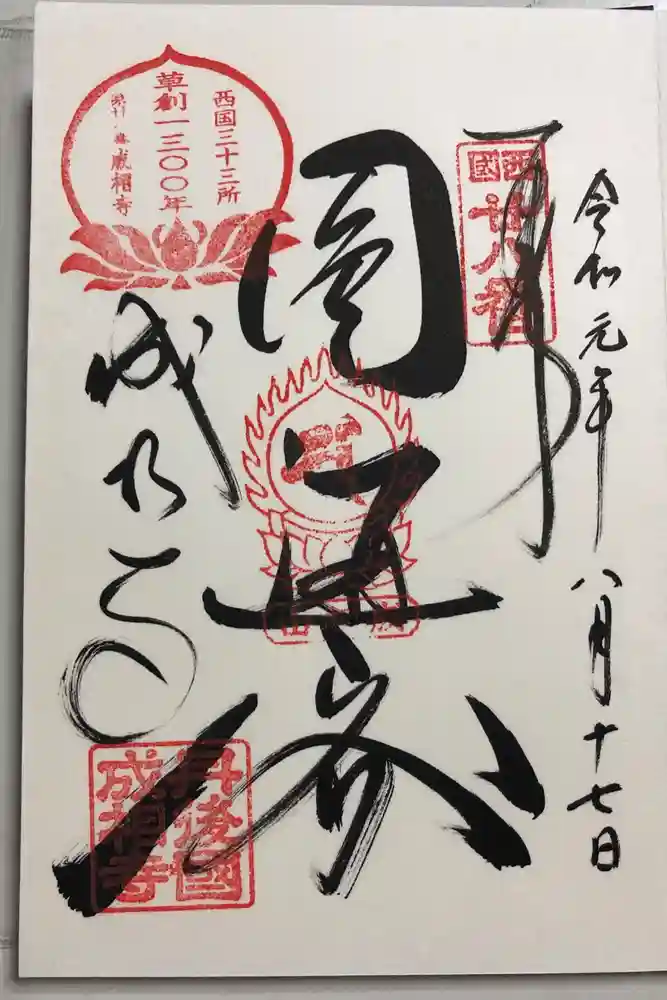 令和元年八月十七日
奉拝
西國
廿八番
圓通閣
西国三十三所
草創一三〇〇年
成相寺
成相寺
丹後國
成相寺